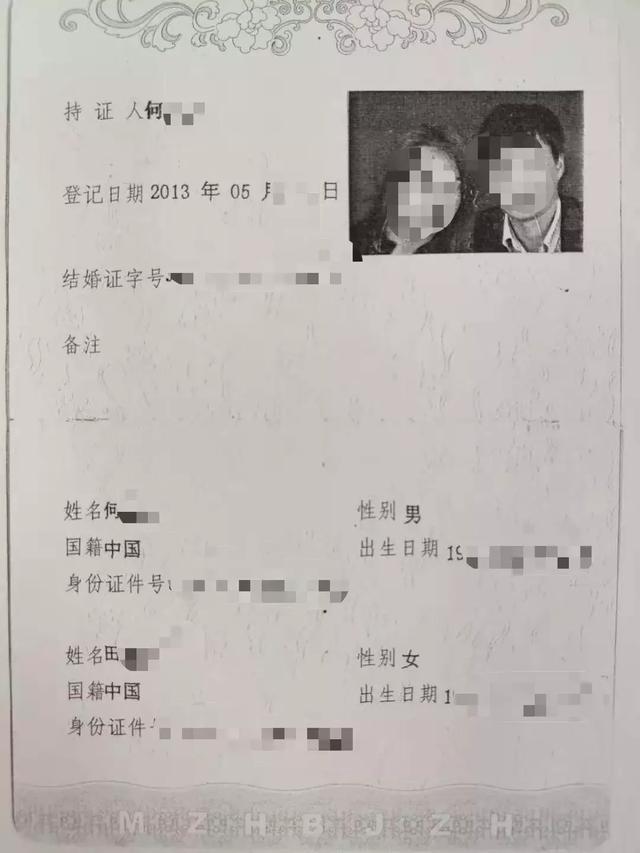 持证人何
登记日期 2013 年 05 月 日
结婚证字号
备注
姓名何 性别 男
国籍中国 出生日期 19
身份证件号
姓名田 性别 女
国籍中国 出生日期 19
身份证件
M Z H B J Z H